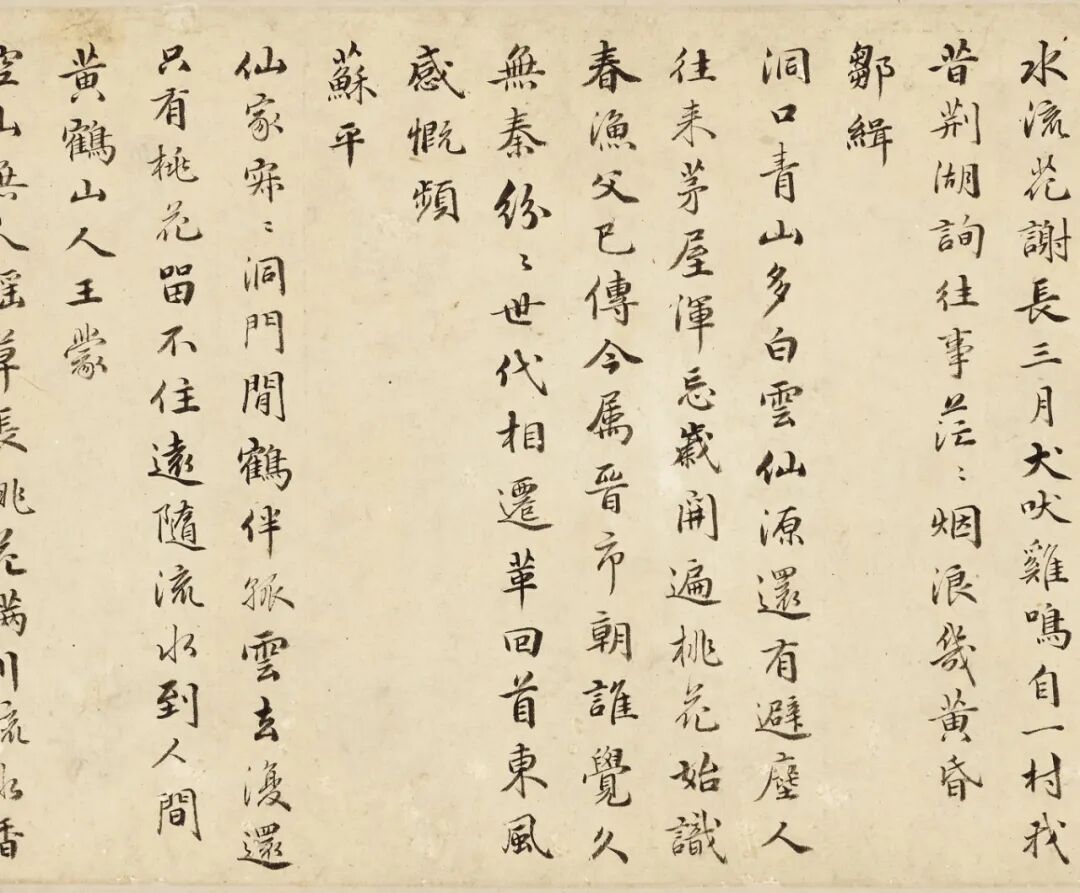 水流花謝長三月犬吠雞鳴自一村我
昔荆湖詢往事茫〻烟浪幾黄昏
鄒緝
洞口青山多白雲仙源還有避塵人
往来茅屋渾忘歲開遍桃花始識
春漁父已傳今属晋市朝誰覺久
無秦紛〻世代相遷革回首東風
感慨頻
蘇平
仙家寂〻洞門閒鶴伴孤雲去復還
只有桃花留不住遠隨流水到人間
黄鶴山人王蒙
空山無人瑶草長桃花滿川流水香